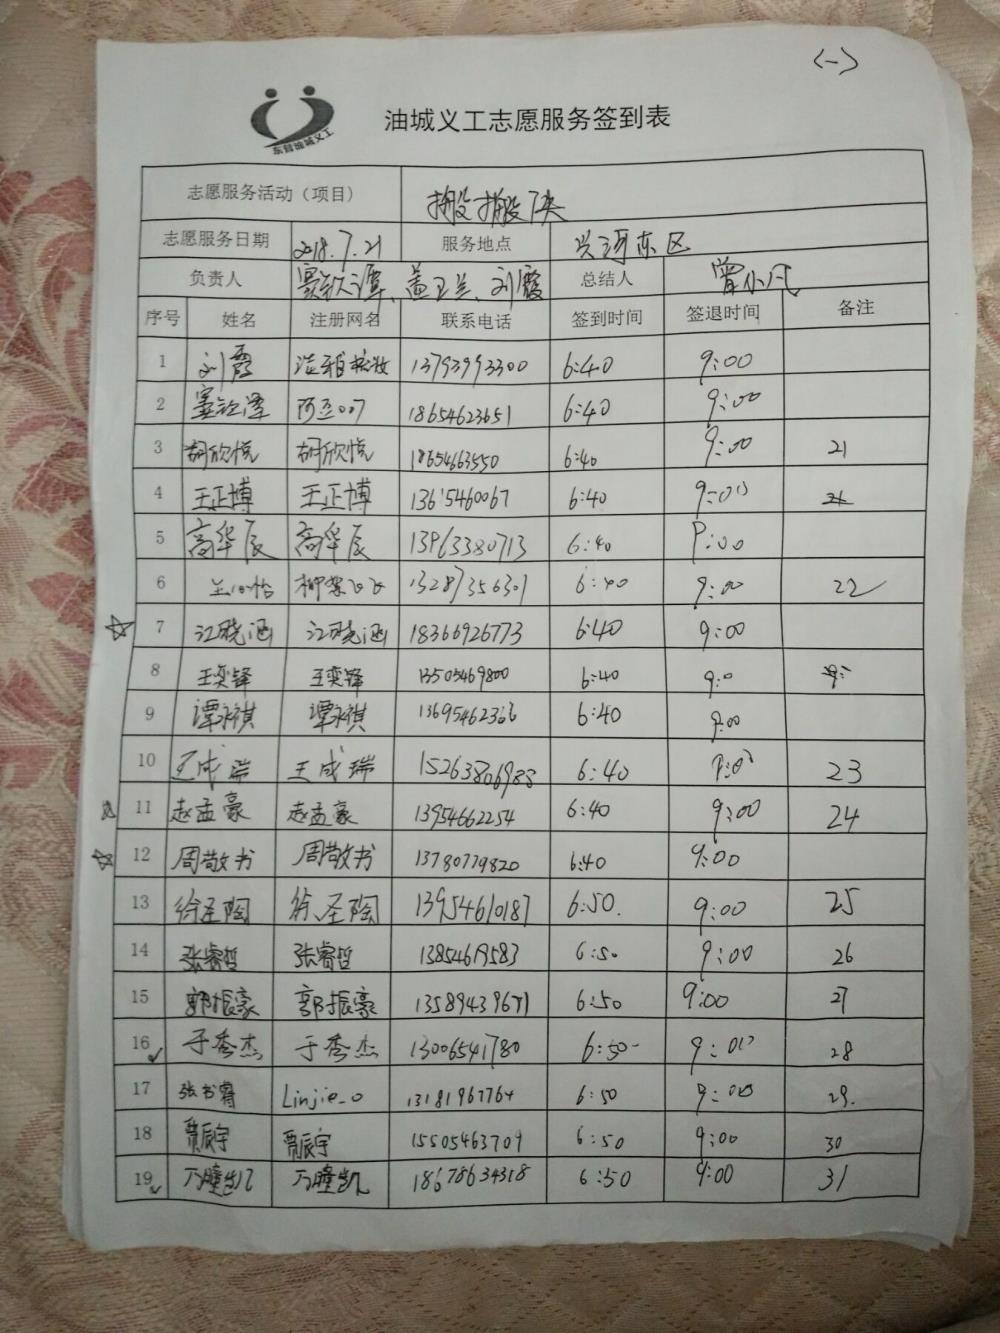 (一)
东营油城义工
油城义工志愿服务签到表
志愿服务活动（项目） 搬搬侠
志愿服务日期 2018.7.21 服务地点 兴河东区
负责人 窦钦泽、盖卫兰、刘霞 总结人 曾小凡
序号 姓名 注册网名 联系电话 签到时间 签退时间 备注
1 刘霞 13793993300 6:40 9:00
2 18654623651 6:40 9:00
3 胡欣悦 胡欣悦 18654663550 6:40 9:00 21
4 王正博 王正博 13615460067 6:40 9:00
5 高华辰 高华辰 13963380713 6:40 9:00
6 13287356301 6:40 9:00 22
7 江晓涵 江晓涵 18366926773 6:40 9:00
8 王奕铎 王奕铎 13505469800 6:40 9:0
9 谭永祺 谭永祺 13695462366 6:40 9:00
10 王成瑞 王成瑞 15263806988 6:40 9:00 23
11 赵孟豪 赵孟豪 13954662254 6:40 9:00 24
12 周敬书 周敬书 13780779820 6:40 9:00
13 徐圣陶 徐圣陶 13954610187 6:50. 9:00 25
14 张睿哲 张睿哲 13854619583 6:50 9:00 26
15 郭振豪 郭振豪 13589439671 6:50 9:00 27
16 于秀杰 于秀杰 13006541780 6:50 9:00 28
17 张书睿 Linjie_o 13181967764 6:50 9:00 29.
18 贾辰宇 贾辰宇 15505463709 6:50 9:00 30
19 万瞳凯 万瞳凯 18678634318 6:50 9:00 31